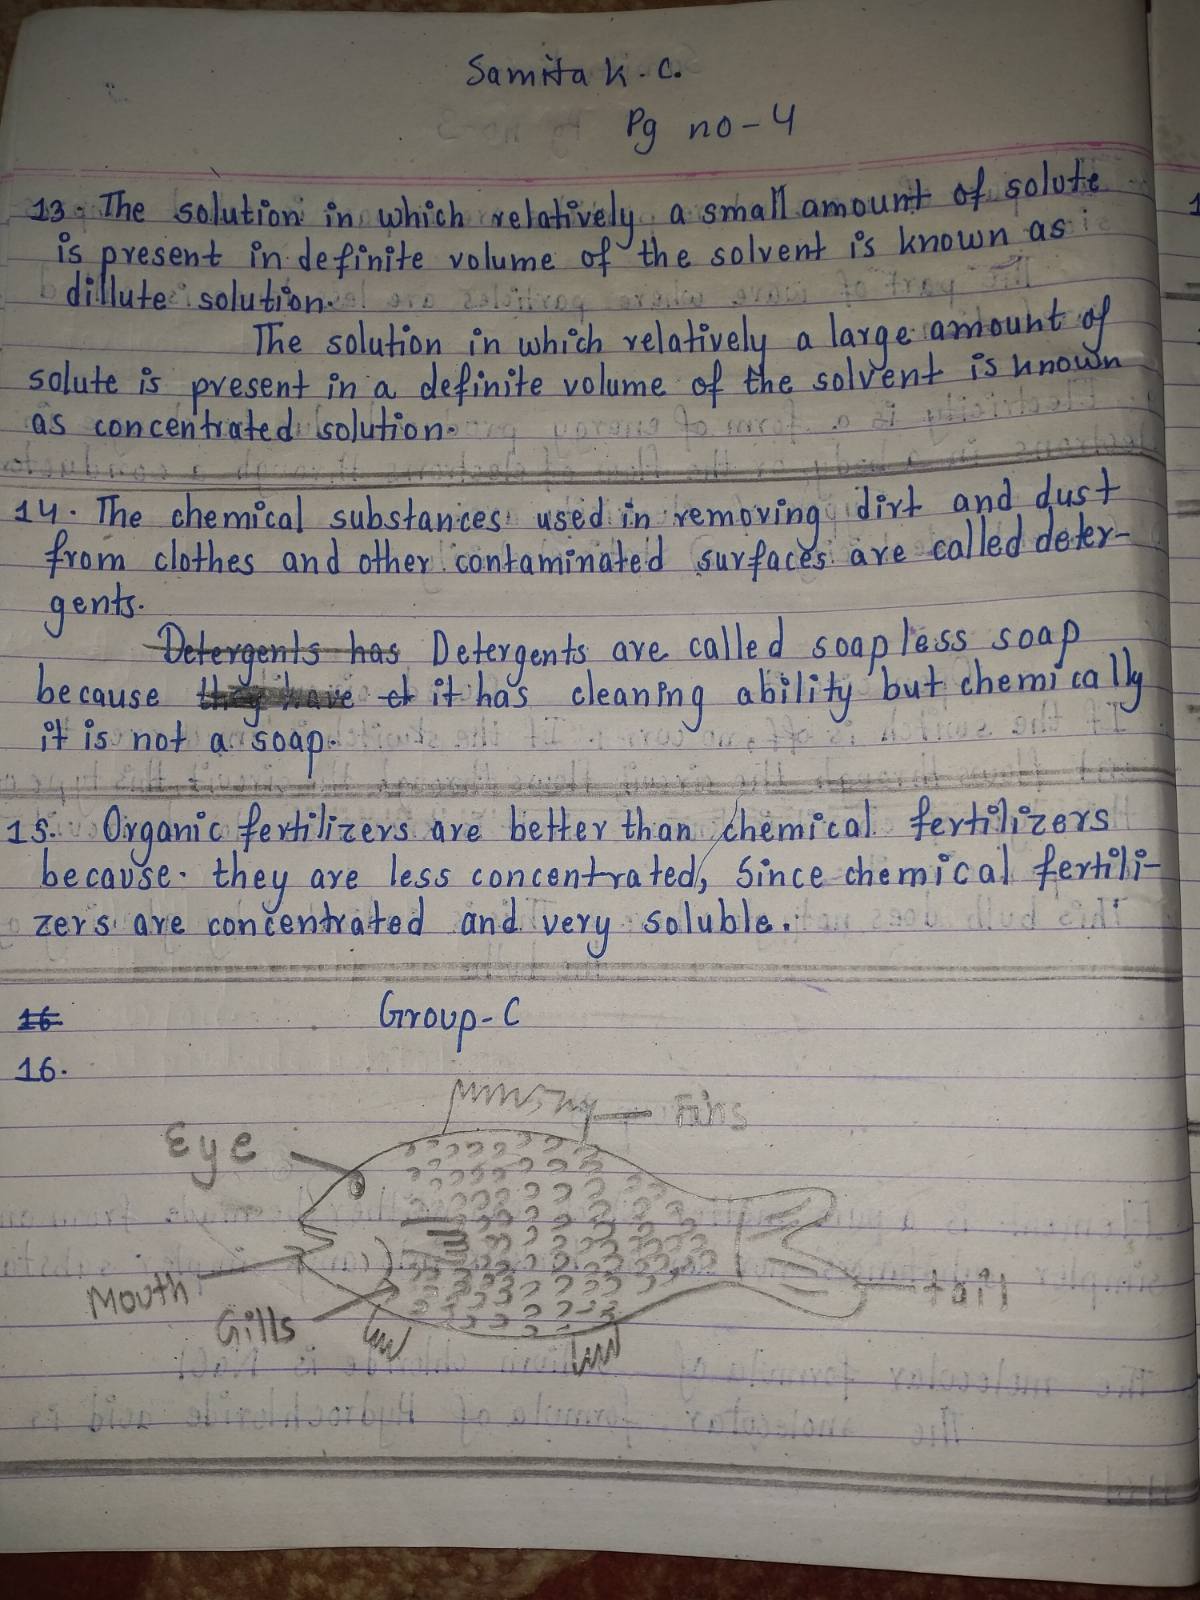 Samita K.C.
Pg no-4
13. The solution in which relatively a small amount of solute
is present in definite volume of the solvent is known as
dillute solution.
The solution in which relatively a large amount of
solute is present in a definite volume of the solvent is known
as concentrated solution.
14. The chemical substances used in removing dirt and dust
from clothes and other contaminated surfaces are called deter-
gents.
Detergents has Detergents are called soapless soap
because they have it has cleaning ability but chemically
it is not a soap.
15. Organic fertilizers are better than chemical fertilizers
because they are less concentrated, Since chemical fertili-
zers are concentrated and very soluble.
16 Group-C
16.
Fins
Eye
Mouth
Gills
tail